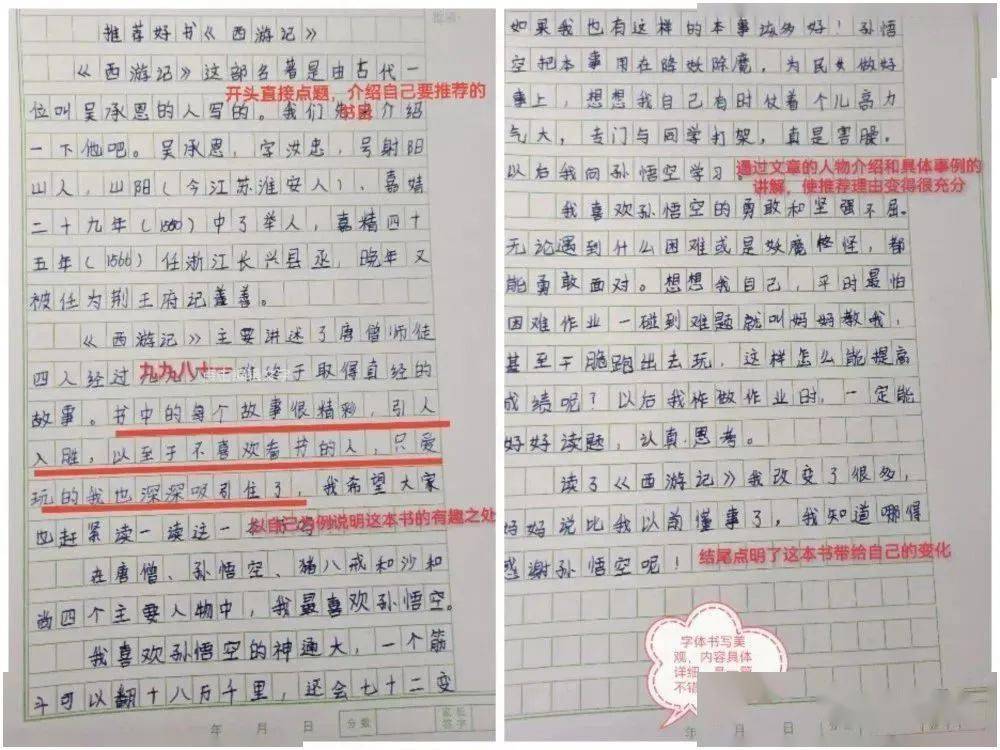 推荐好书《西游记》
《西游记》这部名著是由古代一
开头直接点题，介绍自己要推荐的
位叫吴承恩的人写的。我们先来介绍
一下他吧。吴承恩，字汝忠，号射阳
山人，山阳（今江苏淮安人），嘉婧
二十九年（1550）中了举人，嘉精四十
五年（1566）任浙江长兴县丞，晚年又
被任为荆王府记善善。
《西游记》主要讲述了唐僧师徒
四人经过九九八十一难终于取得真经的
故事。书中的每个故事很精彩，引人
入胜，以至于不喜欢看书的人，只爱
玩的我也深深吸引住了，我希望大家
也赶紧读一读这一本
以自己为例说明这本书的有趣之处
在唐僧、孙悟空、猪八戒和沙和
尚四个主要人物中，我最喜欢孙悟空。
我喜欢孙悟空的神通大，一个筋
斗可以翻十八万千里，还会七十二变
年 月 日 分数 家长签字
如果我也有这样的本事该多好！孙悟
空把本事用在降妖除魔，为民女做好
事上，想想我自己有时仗着个儿高力
气大，专门与同学打架，真是害臊。
以后我向孙悟空学习。
通过文章的人物介绍和具体事例的
讲解，使推荐理由变得很充分
我喜欢孙悟空的勇敢和坚强不屈。
无论遇到什么困难或是妖魔怪怪，都
能勇敢面对。想想我自己，平时最怕
困难作业一碰到难题就叫妈妈教我，
甚至干脆跑出去玩，这样怎么能提高
成绩呢？以后我作做作业时，一定能
好好读题，认真思考。
读了《西游记》我改变了很多，
好好说比我以前懂事了，我知道哪得
感谢孙悟空呢！
结尾点明了这本书带给自己的变化
字体书写美
观，内容具体
详细，是一篇
不错
年 月 日